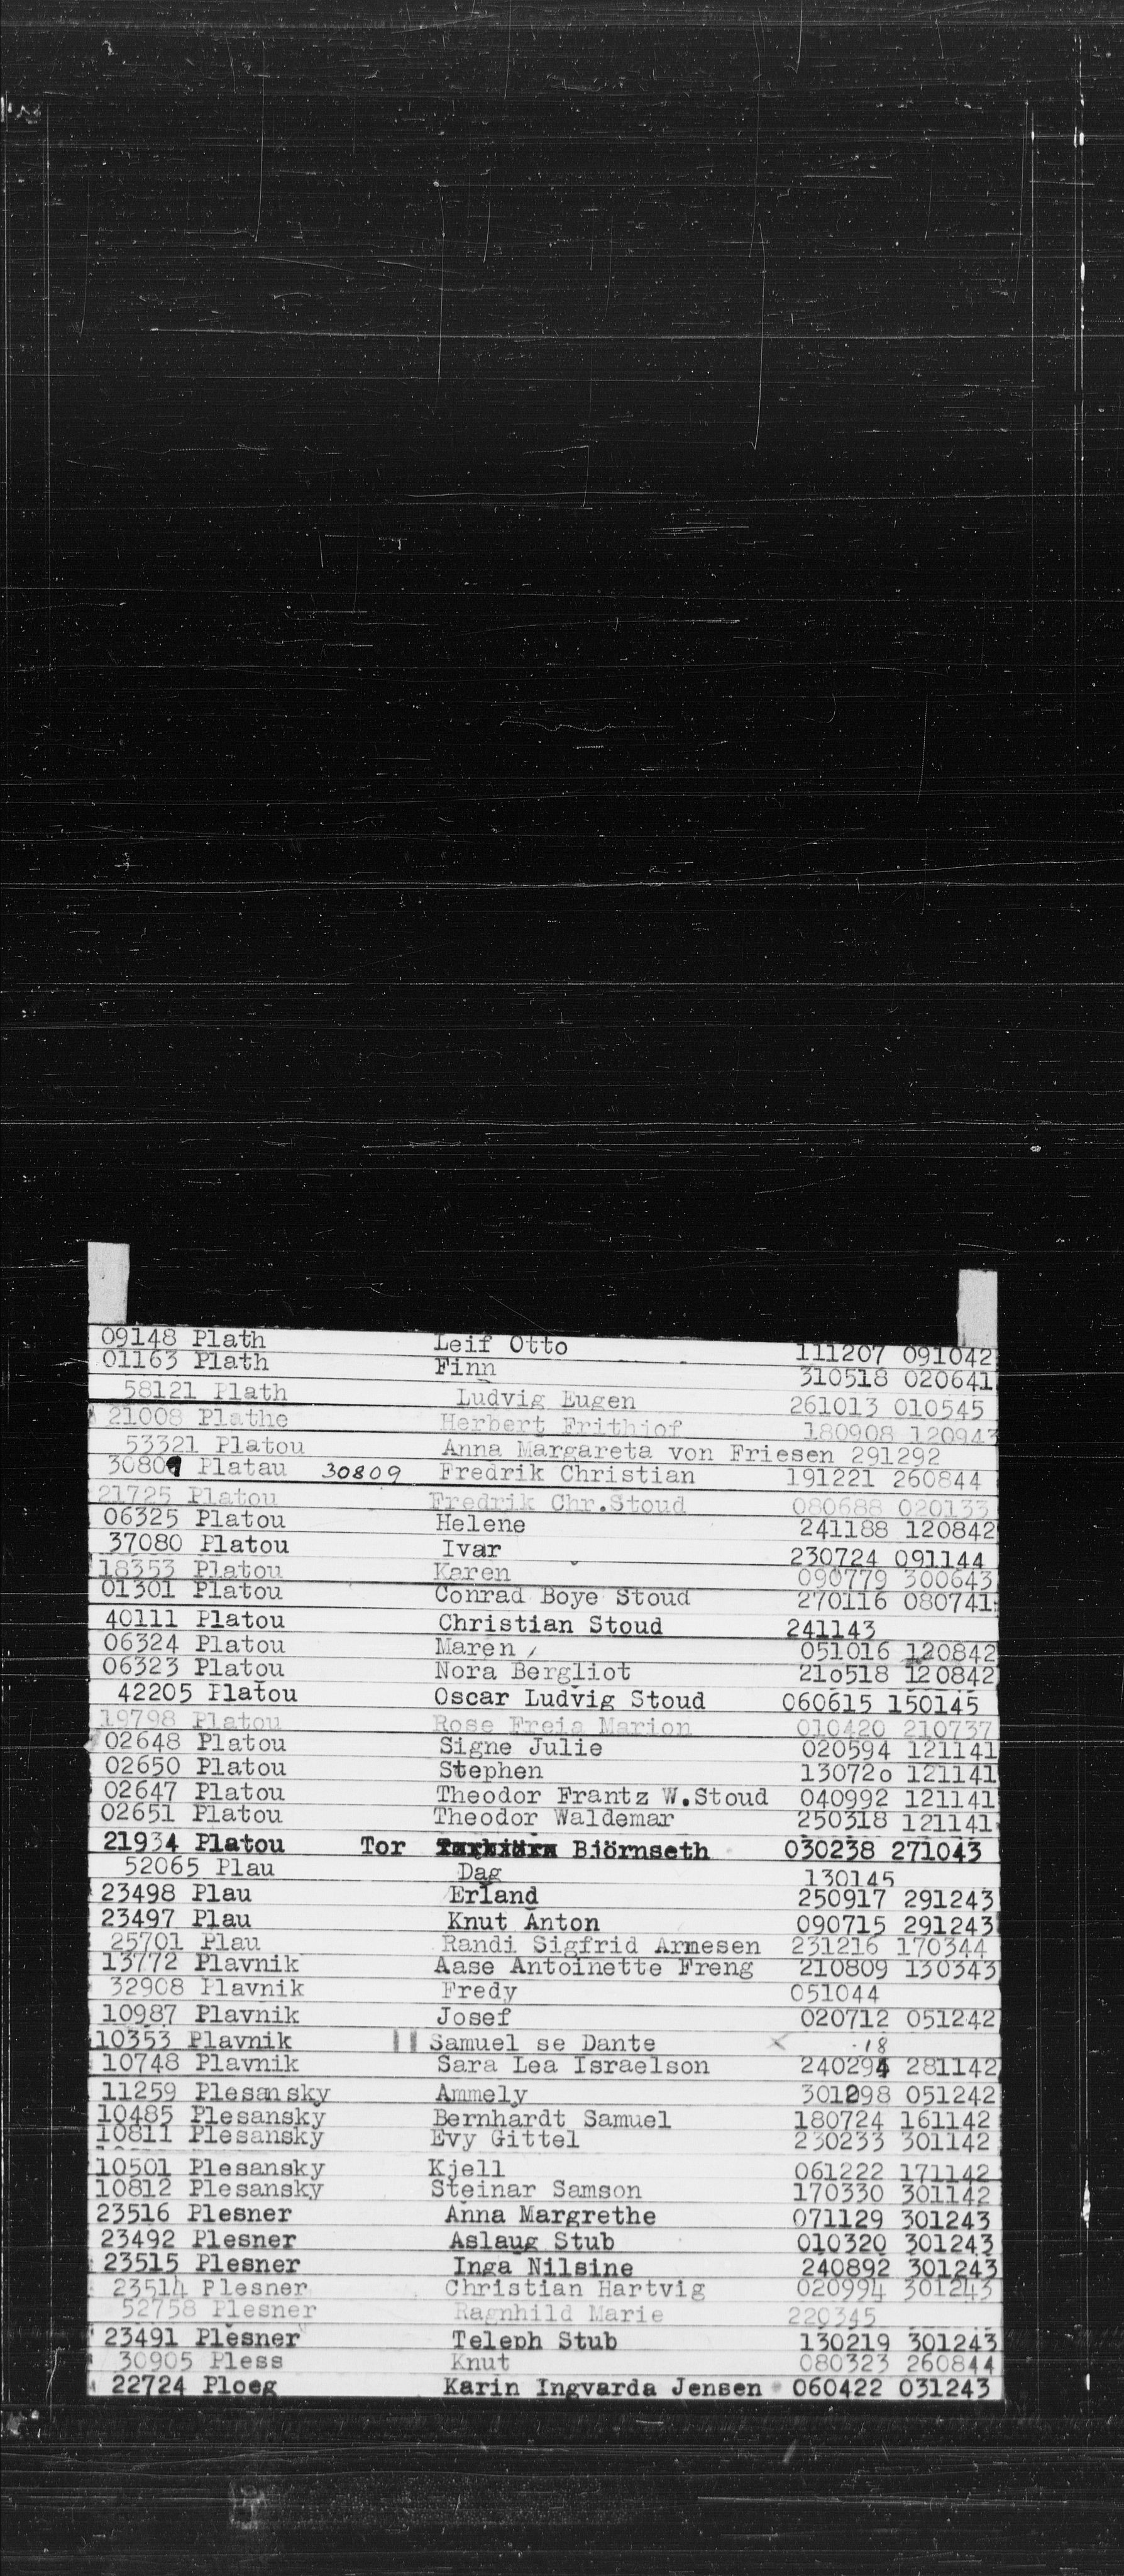 09148 Plath Leif Otto 111207 091042
01163 Plath Finn 310518 020641
58121 Plath Ludvig Eugen 261013 010545
21008 Plathe Herbert Frithiof 180908 120943
53321 Platou Anna Margareta von Friesen 291292
30809 Platau 30809 Fredrik Christian 191221 260844
21725 Platou Fredrik Chr.Stoud 080688 020133
06325 Platou Helene 241188 120842
37080 Platou Ivar 230724 091144
18353 Platou Karen 090779 300643
01301 Platou Conrad Boye Stoud 270116 080741
40111 Platou Christian Stoud 241143
06324 Platou Maren 051016 120842
06323 Platou Nora Bergliot 210518 120842
42205 Platou Oscar Ludvig Stoud 060615 150145
19798 Platou Rose Freia Marion 010420 210737
02648 Platou Signe Julie 020594 121141
02650 Platou Stephen 130720 121141
02647 Platou Theodor Frantz W.Stoud 040992 121141
02651 Platou Theodor Waldemar 250318 121141
21934 Platou Tor Björnseth 030238 271043
52065 Plau Dag 130145
23498 Plau Erland 250917 291243
23497 Plau Knut Anton 090715 291243
25701 Plau Randi Sigfrid Armesen 231216 170344
13772 Plavnik Aase Antoinette Freng 210809 130343
32908 Plavnik Fredy 051044
10987 Plavnik Josef 020712 051242
10353 Plavnik Samuel se Dante 18
10748 Plavnik Sara Lea Israelson 240294 281142
11259 Plesansky Ammely 301298 051242
10485 Plesansky Bernhardt Samuel 180724 161142
10811 Plesansky Evy Gittel 230233 301142
10501 Plesansky Kjell 061222 171142
10812 Plesansky Steinar Samson 170330 301142
23516 Plesner Anna Margrethe 071129 301243
23492 Plesner Aslaug Stub 010320 301243
23515 Plesner Inga Nilsine 240892 301243
23514 Plesner Christian Hartvig 020994 301243
52758 Plesner Ragnhild Marie 220345
23491 Plesner Teleph Stub 130219 301243
30905 Pless Knut 080323 260844
22724 Ploeg Karin Ingvarda Jensen 060422 031243